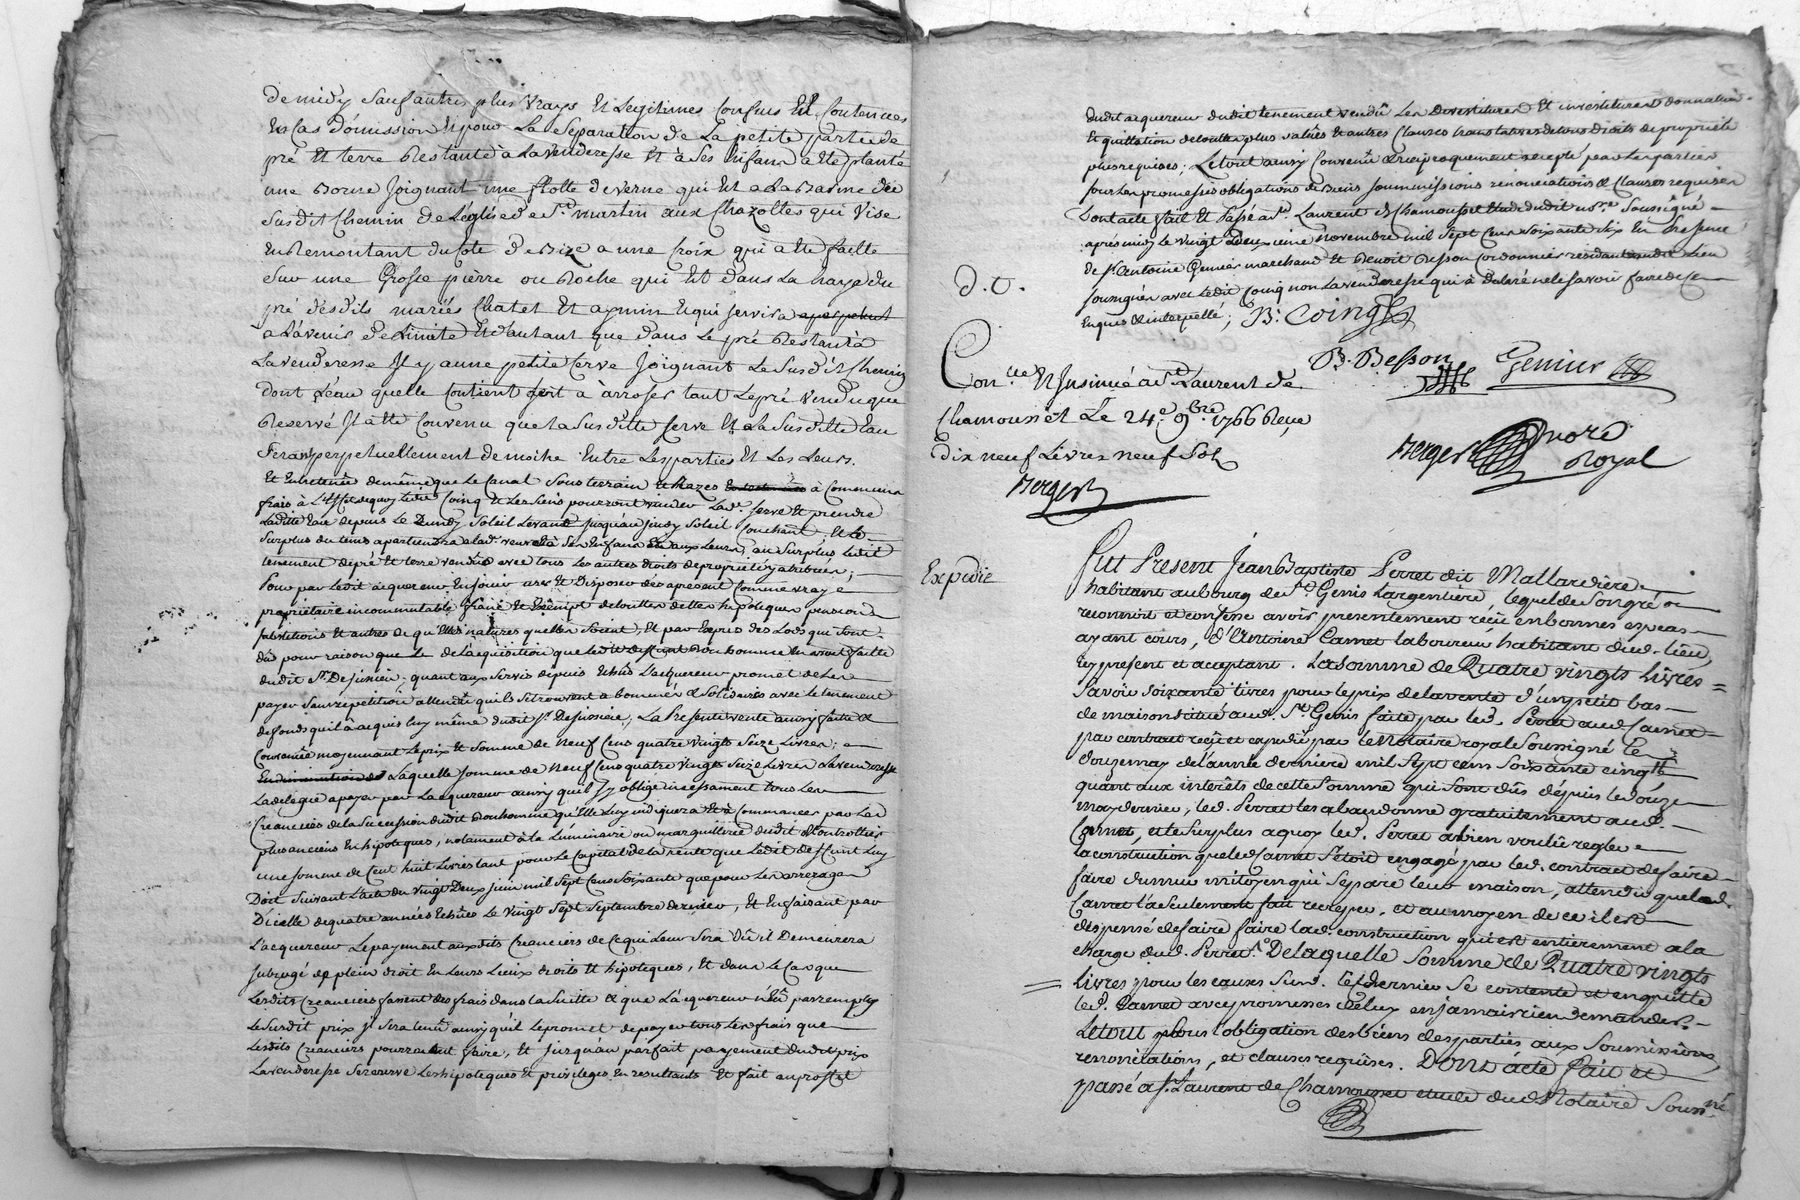 de midy sauf autres plus vrays Et Legitimes Confins Et Contences
En Cas d'omission Et pour La Separation de La petite partie de
pré Et terre Restante à La venderesse Et à Ses Enfans a Eté planté
une Borne Joignant une flotte de verne qui Est a La Bas me des
Susdit Chemin de L'église de St. martin aux Chazottes qui vise
En Remontant du Coté de Bize a une Croix qui a Eté faitte
Sur une Grosse pierre ou Roche qui Est dans La haye du
pré desdits mariés Chatet Et aymin Et qui servira
à L'avenir de Limite Et d'autant que dans Le pré Restant à
La venderesse Il y a une petite Serve Joignant Le Susdit Chemin
dont L'eau quelle Contient sert à arroser tant Le pré vendu que
Reservé Il a Eté Convenu que La Susditte Serve Et La Susditte Eau
Seront perpetuellement de moitié Entre Les parties Et Les Leurs.
Et Entretenüe de même que Le Canal Sous terrain Et Razes à Commeuns
frais à L'Effet de quoy Ledit Coing Et Les Siens pourront vuider Lade. Serve Et prendre
Laditte Eau depuis Le Lundy Soleil Levant Jusqu'au Jeudy Soleil Couchant, Et Le
Surplus du tems apartiendra a Lad. venve Et à Ses Enfans Et aux Leurs, au Surplus Ledit
tenement de pré Et terre vendu avec tous Les autres droits de propriété y atribués;
Pour par Ledit acquereur En Joüir user Et Disposer dès apresant Comme vray
proprietaire incommutable franc Et Exempt de touttes dettes hipoteques pensions
substitutions Et autres de qu'Elles natures quelles Soient, Et par Exprès des Lods qui Sont
dû pour raison que Le de L'acquisition que Bonhomme En avoit faitte
dudit Sr. Dejussieu; quant aux Servis depuis Echus L'acquereur promet de Les
payer Sans repetition attendu qu'ils Se trouvent abonnés & Solidaires avec Le tenement
de fonds qu'il à acquis Luy même dudit Sr. Dejussieu, La Presente vente aussy faitte &
Convenüe moyennant Le prix Et Somme de Neuf Cens quatre vingts Seize Livres;
Laquelle Somme de Neuf Cens quatre vingts Seize Livres La venderesse
La delegue a payer par L'acquereur aussy quil S'y oblige incessament tous Les
Creanciers de La Succession dudit Bonhomme qu'Elle Luy indiquera Et à Commancer par Les
plus anciens En hipoteques, notament à la Luminaire ou marguillerie dudit
une somme de Cent huit Livres tant pour Le Capital de la rente que Ledit deffunt Luy
Doit Suivant L'acte du vingt Deux juin mil Sept Cens Soixante que pour Les arrerages
D'icelle de quatre années Echües Le vingt Sept Septembre dernier, Et En faisant par
L'acquereur Le payement auxdits Creanciers de Ce qui Leur Sera Dû il Demeurera
Subrogé de plein droit En Leurs Lieux droits Et hipoteques, Et dans Le Cas que
Lesdits Creanciers fassent des frais dans la Suitte & que L'acquereur n'Eut pas remply
Le Susdit prix Il Sera tenû aussy quil Le promet de payer tous Les frais que
Lesdits Creanciers pourraient faire, Et Jusqu'au parfait payement dudit prix
La venderesse Se reserve Les hipoteques Et privileges En resultants Et fait au profit
dudit acquereur dudit tenement vendû Les Devestitures Et investitures donnation
Et quittation de touttes plus valües Et autres Clauses translatives de tous droits de propriété
plus requises; Le tout aussy Convenu & reciproquement accepté par Les parties
sous Les promesses obligations de Biens Soummissions rénonciations & Clauses requises
Dont acte fait Et Passé a St. Laurent de Chamousset Etude dudit nore. Soussigné
après midy Le vingt Deuxieme Novembre mil Sept Cens Soixante Six En Presence
de Sr. Antoine Genier marchand Et Benoit Besson Cordonnier résidants audit Lieu
Soussignés avec Ledit Coing non La venderesse qui à Declaré ne le Savoir faire de Ce
Enquis & interpellé; B. Coing
B. Besson Genier
D. C.
Conlle. Et Insinué a St. Laurent de
Chamousset Le 24e. 9bre. 1766 Reçu
Dix neuf Livres neuf Sols
Berger
Berger nore
Royal
Expedié
Fut Present Jean Baptiste Perret dit Mallardière
habitant au bourg de St. Genis Largentière, lequel de Son gré
reconnoit et confesse avoir presentement reçu en bonnes espeas
ayant cours, d'Antoine Carret laboureur habitant dud. lieu,
icy present et acceptant. La Somme de Quatre vingts Livres
Savoir Soixante livres pour le prix de la vente d'un petit bas
de maison Situé aud. St. Genis faite par led. Perret aud. Carret
par contract reçû et expedié par le Notaire royal Soussigné le
douze may de l'année derniere mil Sept cens Soixante cinq
quant aux interêts de cette Somme qui Sont dûs depuis le douze
may dernier, led. Perret les abandonne gratuitement aud.
Carret, et le Surplus a quoy led. Perret a bien voulû regler
la construction que led Carret S'etoit engagé par led. contract de faire
faire du mur mitoyen qui Separe leur maison, attendu que led.
Carret l'a Seulement fait recrepir, et au moyen de ce il est
dispensé de faire faire lad. construction qui est entierement a la
charge dud. Perret. De laquelle Somme de Quatre vingts
Livres pour les causes Sud. Ce dernier Se contente et en quitte
led. Carret avec promesses de luy en jamais rien demander.
Le tout Sous l'obligation des biens des parties aux Soumissions,
renonciations, et clauses requises. Dont acte fait et
passé a St. Laurent de Chamousset etude dud. Notaire Soussné